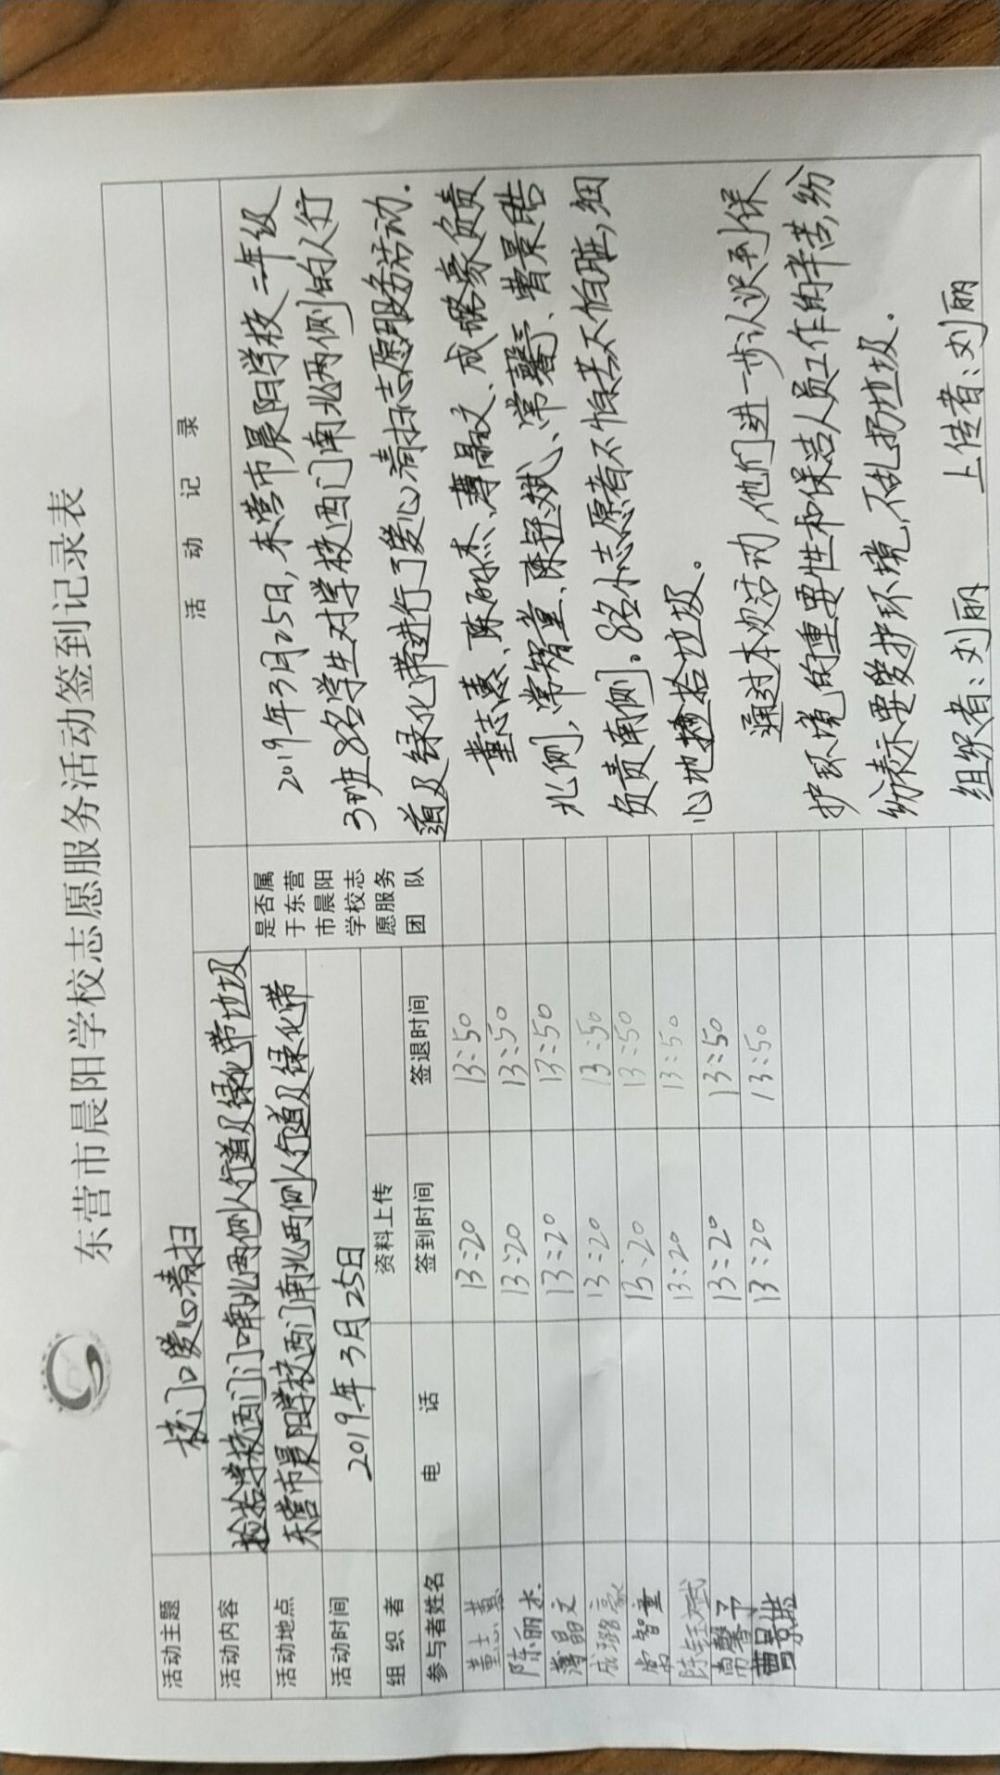 东营市晨阳学校志愿服务活动签到记录表
活动主题 校门口爱心清扫
活动内容 捡拾学校西门口南北两侧人行道及绿化带垃圾
活动地点 东营市晨阳学校西门南北两侧人行道及绿化带
活动时间 2019年3月25日
组织者 资料上传
是否属于东营市晨阳学校志愿服务团队
参与者姓名 电话 签到时间 签退时间
董志慧 13:20 13:50
陈丽杰 13:20 13:50
薄晶文 13:20 13:50
成璐豪 13:20 13:50
常智童 13:20 13:50
陈钰斌 13:20 13:50
常馨予 13:20 13:50
曹景皓 13:20 13:50
活动记录
2019年3月25日,东营市晨阳学校二年级
3班8名学生对学校西门南北两侧的人行
道及绿化带进行了爱心清扫志愿服务活动.
董志慧、陈丽杰、薄晶文、成璐豪负责
北侧,常智童、陈钰斌、常馨予、曹景皓
负责南侧。8名小志愿者不怕苦不怕脏,细
心地捡拾垃圾。
通过本次活动,他们进一步认识到保
护环境的重要性和保洁人员工作的辛苦,纷
纷表示要爱护环境,不乱扔垃圾.
组织者:刘丽 上传者:刘丽